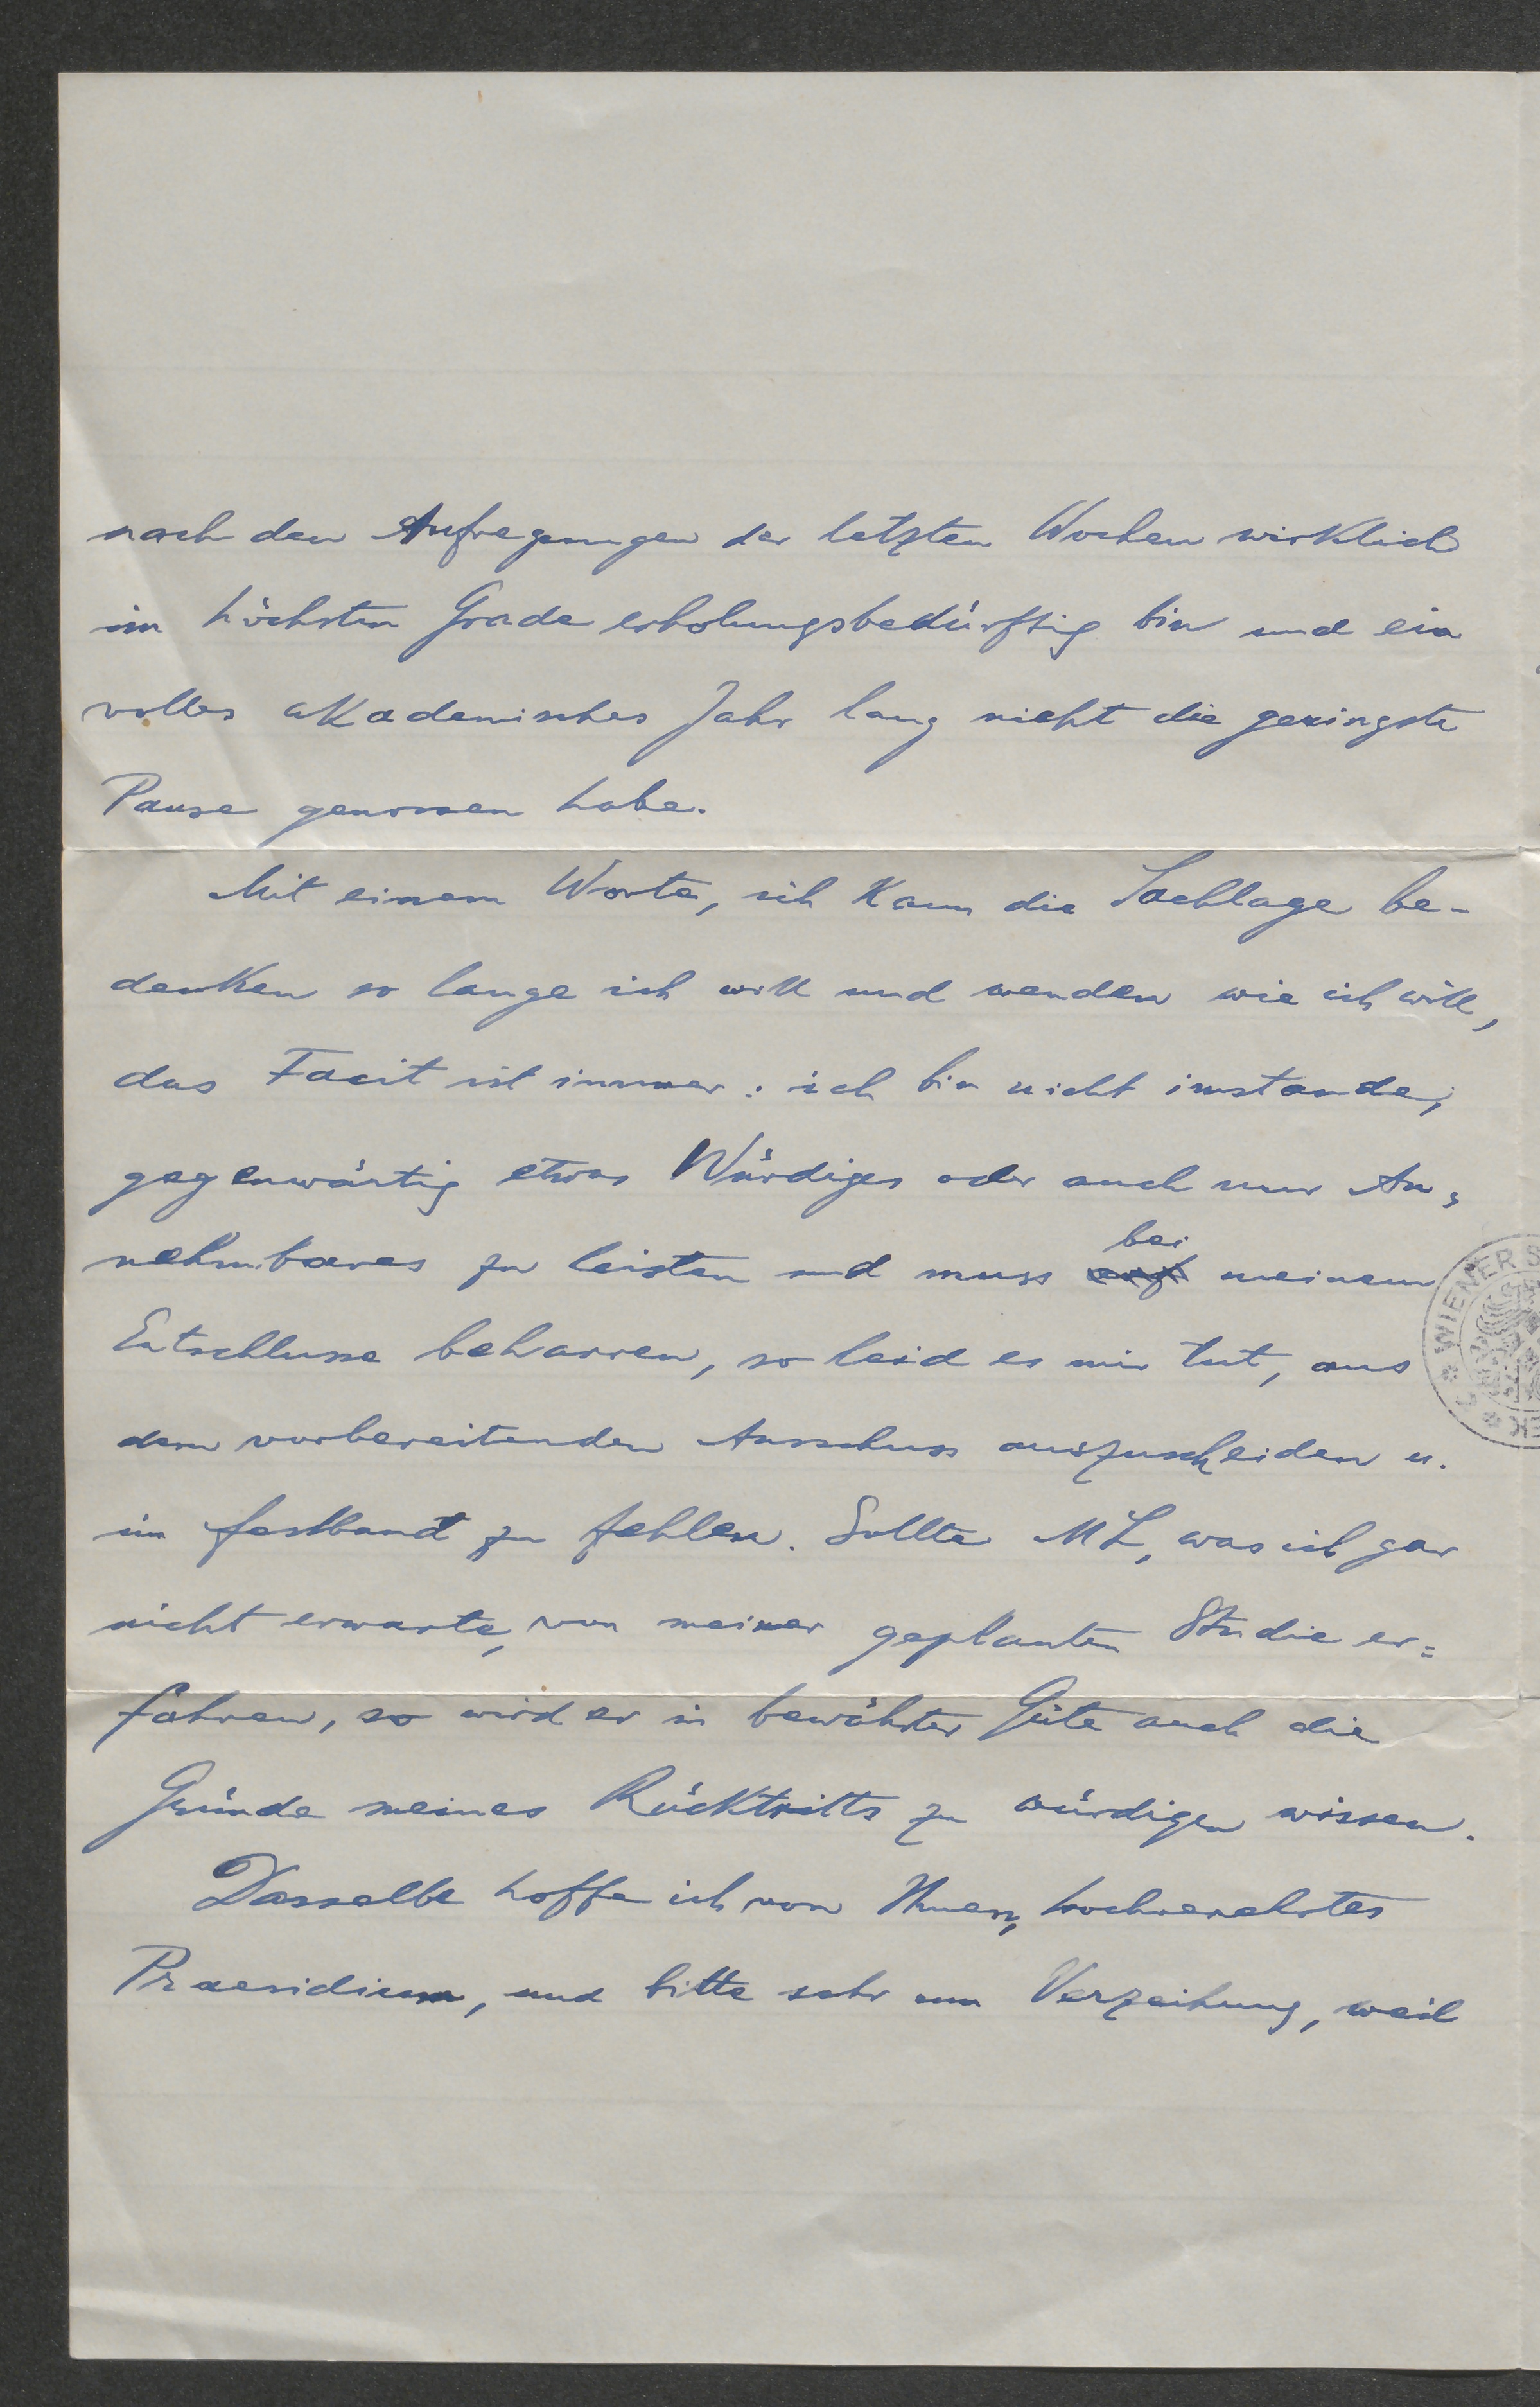 nach den Aufregungen der letzten Wochen wirklich
im höchsten Grade erholungsbedürftig bin und ein
volles akademisches Jahr lang nicht die geringste
Pause genossen habe.
Mit einem Worte, ich kann die Sachlage be-
denken so lange ich will und wenden wie ich will,
das Facit ist immer: ich bin nicht imstande,
gegenwärtig etwas Würdiges oder auch nur An-
bei
nehmbares zu leisten und muss auf meinem
Entschlusse beharren, so leid es mir tut, aus
dem vorbereitenden Ausschuss auszuscheiden u.
im Festband zu fehlen. Sollte ML, was ich gar
nicht erwarte, von meiner geplanten Studie er=
fahren, so wird er in bewährter Güte auch die
Gründe meines Rücktritts zu würdigen wissen.
Dasselbe hoffe ich von Ihnen, hochverehrtes
Praesidium, und bitte sehr um Verzeihung, weil
WIENER S
EK